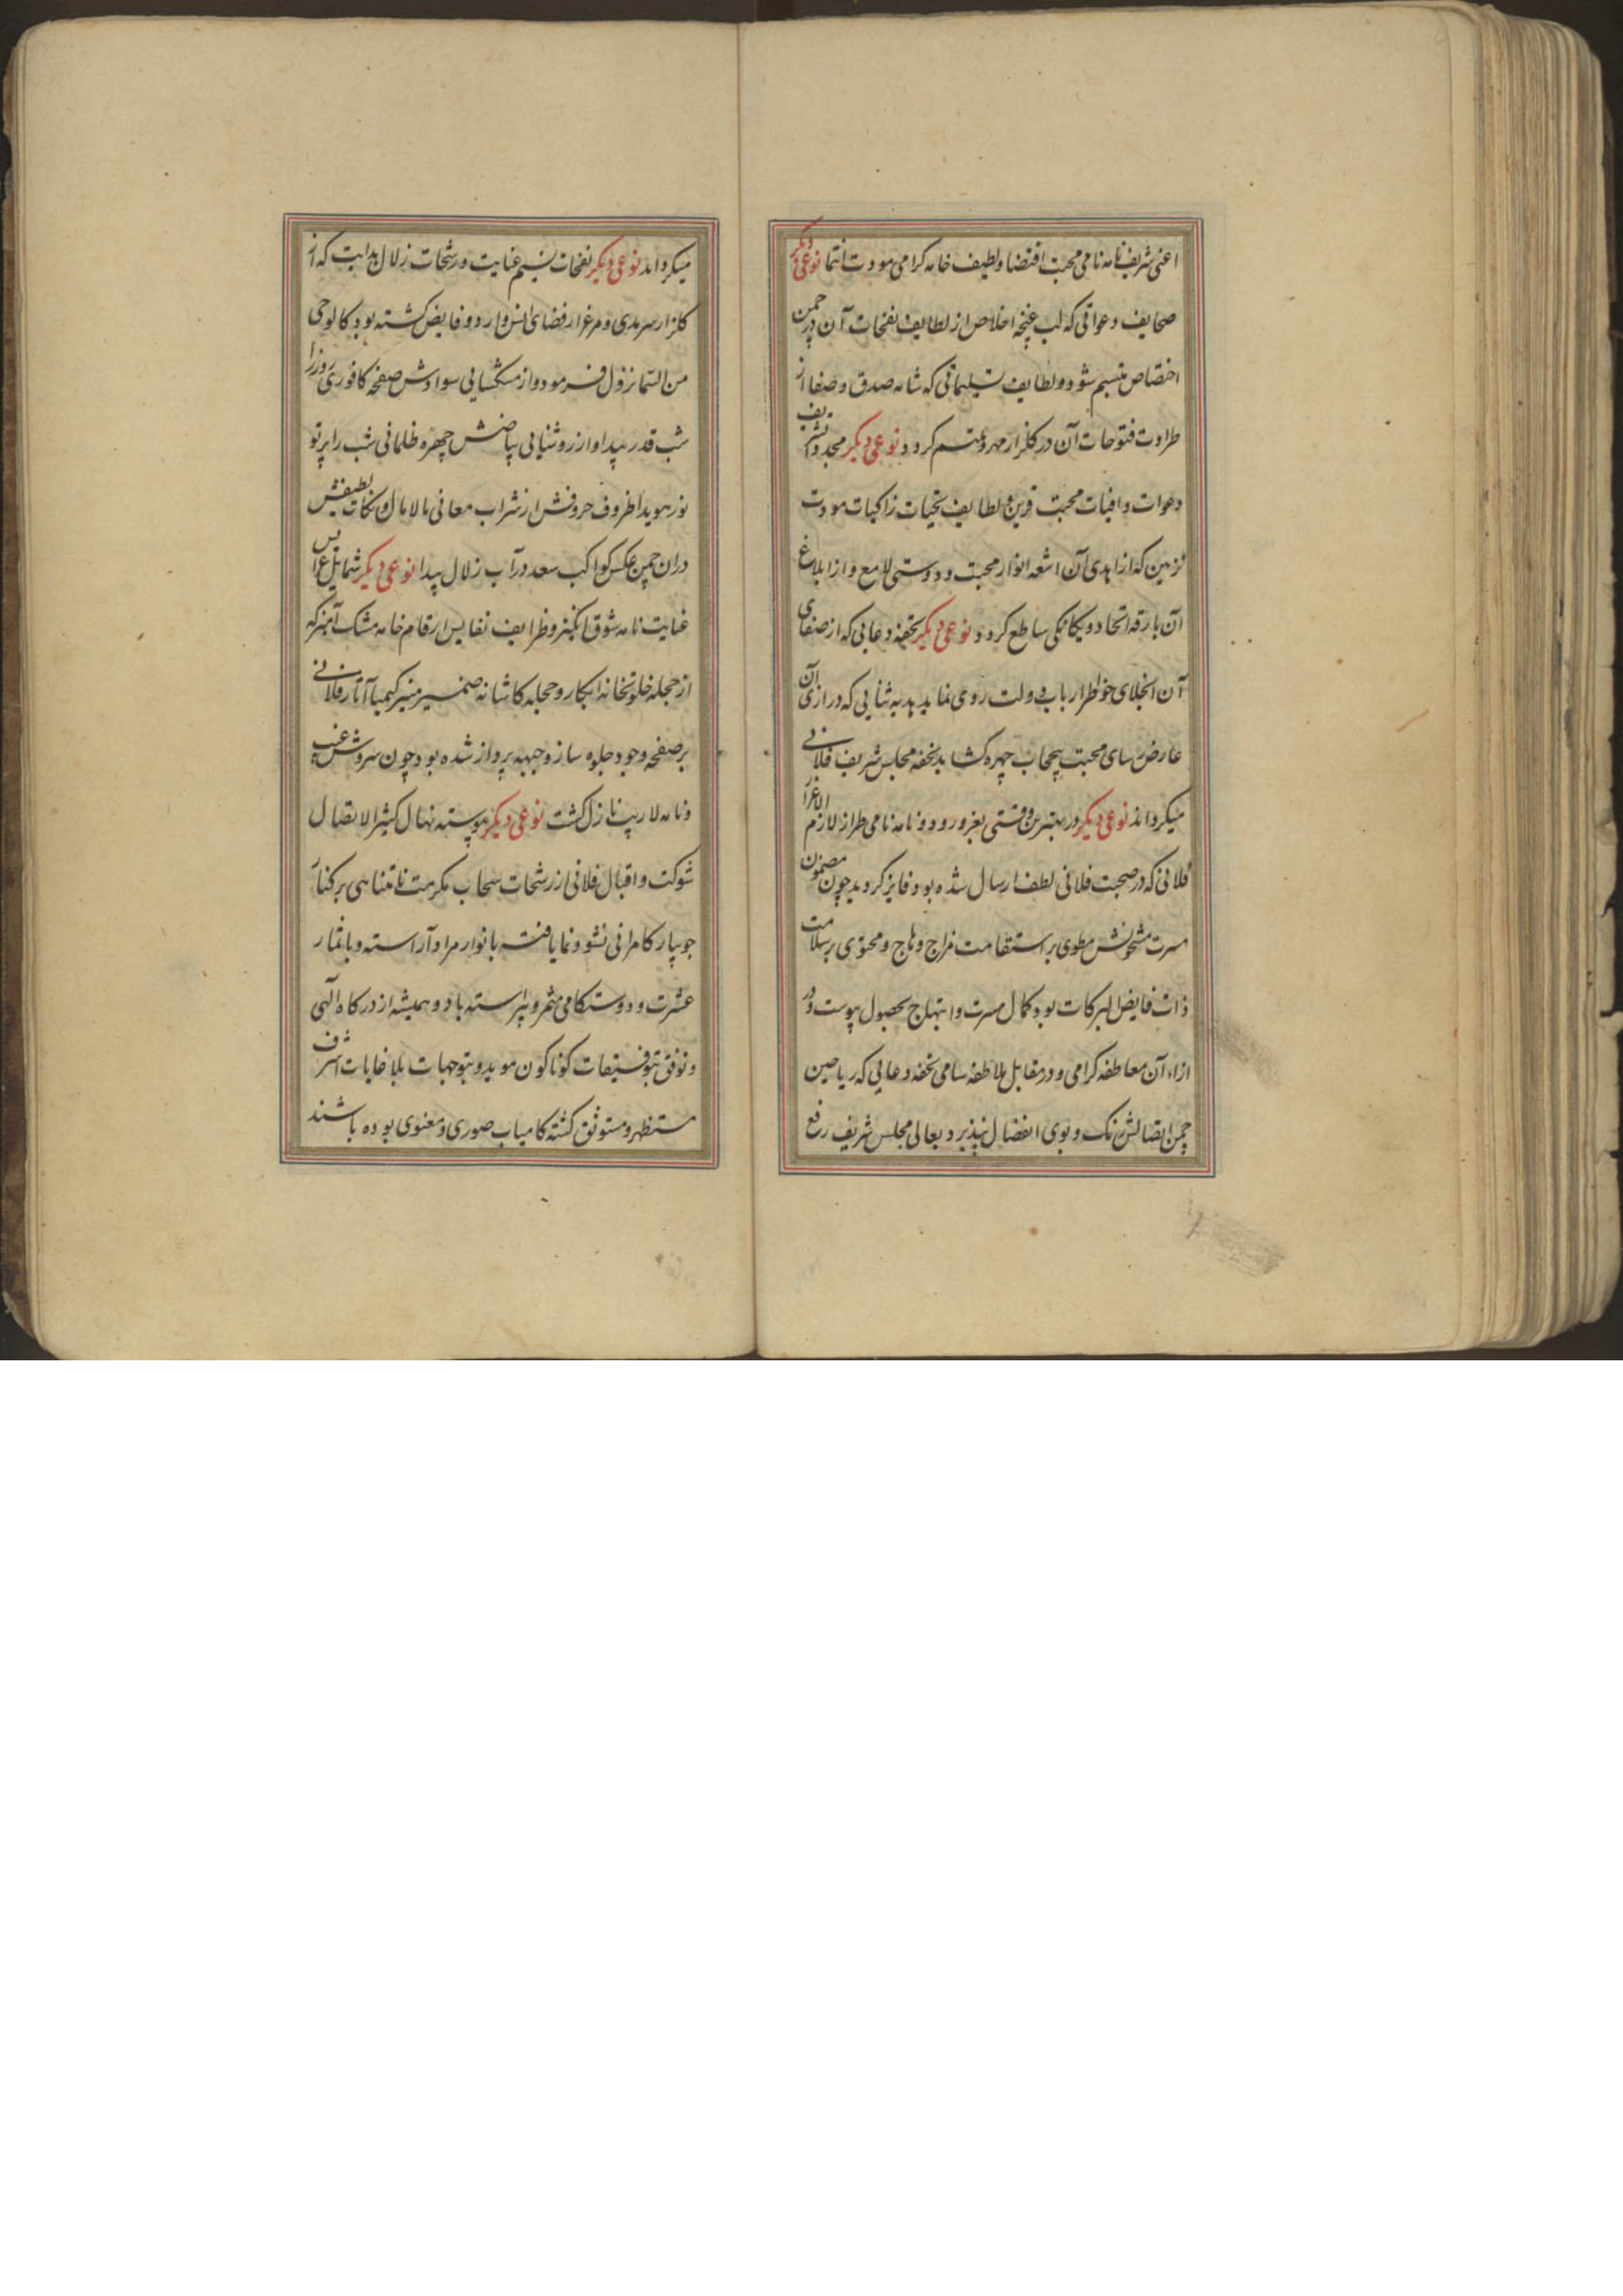 اعنی شریف نامه نامی محبت اقتضا و لطیف خامه کرامی مودت انتما نوعی دیکر
صحایف دعواتی که لب غنچه اخلاص از لطایف نفحات آن در چمن
اختصاص متبسم شود و لطایف تسلیماتی که شامه صدق و صفا از
طراوت فتوحات آن در کلزار مهر و متنسم کردد نوعی دیکر مجددا تشریف
دعوات وافیات محبت قرین و لطایف تحیات زاکیات مودت
تزیین که از اهدی آن اشعه انوار محبت و دوستی لامع و از ابلاغ
آن بارقه اتحاد و یکانکی ساطع کردد نوعی دیکر تحفه دعایی که از صفای
آن انجلای خواطر ارباب دولت روی نماید هدیه ثنایی که در ازای آن
عارض سای محبت بیحجاب چهره کشاید تحفه مجلس شریف فلانی
میکرداند نوعی دیکر در بهترین وقتی بعز ورود و نامه نامی طراز لازم الاعزاز
فلانی که در صحبت فلانی لطف ارسال شده بود فایز کردید چون مضمون
مسرت مشحونش مطوی بر استقامت مزاج وهاج و محتوی بر سلامت
ذات فایض البرکات بود کمال مسرت و ابتهاج بحصول پیوست و در
ازاء آن معاطفه کرامی و در مقابل ملاطفه سامی تحفه دعایی که ریاحین
چمن اتصالش رنک و بوی انفصال نپذیرد بعالی مجلس شریف رفع
میکرداند نوعی دیکر نفحات نسیم عنایت و رشحات زلال هدایت که از
کلزار سرمدی و مرغزار فضای انس وارد و فایض کشته بود کالوحی
من السما نزول فرمود و از مشکسایی سوادش صفحه کافوری روز را
شب قدر پیدا و از روشنایی بیاضش چهره ظلمانی شب را پرتو
نور هویدا ظروف حروفش از شراب معانی مالامال و نکات لطیفش
دران چمن عکس کواکب سعد در آب زلال پیدا نوعی دیکر شمایل عرایس
عنایت نامه شوق انکیز و ظرایف نفایس ارقام خامه مشک آمیز که
از حجله خلوتخانه ابکار و حجابه کاشانه ضمیر منیر کیمیا آثار فلانی
بر صفحه وجود جلوه ساز و جبهه پرداز شده بود چون سروش غیب
و نامه لاریب نازل کشت نوعی دیکر پیوسته نهال کثیر الاتصال
شوکت و اقبال فلانی از رشحات سحاب مکرمت نامتناهی بر کنار
جویبار کامرانی نشو و نما یافته بانوار مراد آراسته و باثمار
عشرت و دوستکامی مثمر و پیراسته باد و همیشه از درکاه آلهی
و توفق بتوفیقات کوناکون موید و بتوجهات بلاغایات اشرف
مستظهر و مستوثق کشته کامیاب صوری و معنوی بوده باشند